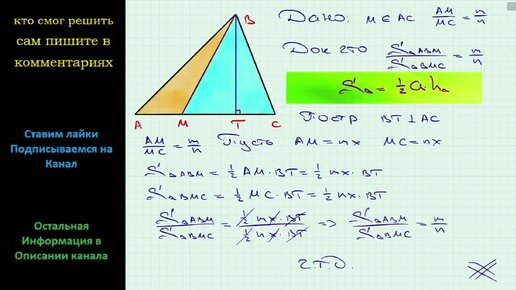 кто смог решить
сам пишите в
комментариях
Ставим лайки
Подписываемся на
Канал
Остальная
Информация в
Описании канала
B
A M T C
Дано: M ∈ AC AM/MC = m/n
Док что S△ABM/S△BMC = m/n
S△ = ½ a hₐ
Постр BT ⊥ AC
AM/MC = m/n Пусть AM = mx MC = nx
S△ABM = ½ AM · BT = ½ mx · BT
S△BMC = ½ MC · BT = ½ nx · BT
S△ABM/S△BMC = ½ mx · BT/½ nx · BT => S△ABM/S△BMC = m/n
Ч.Т.Д.